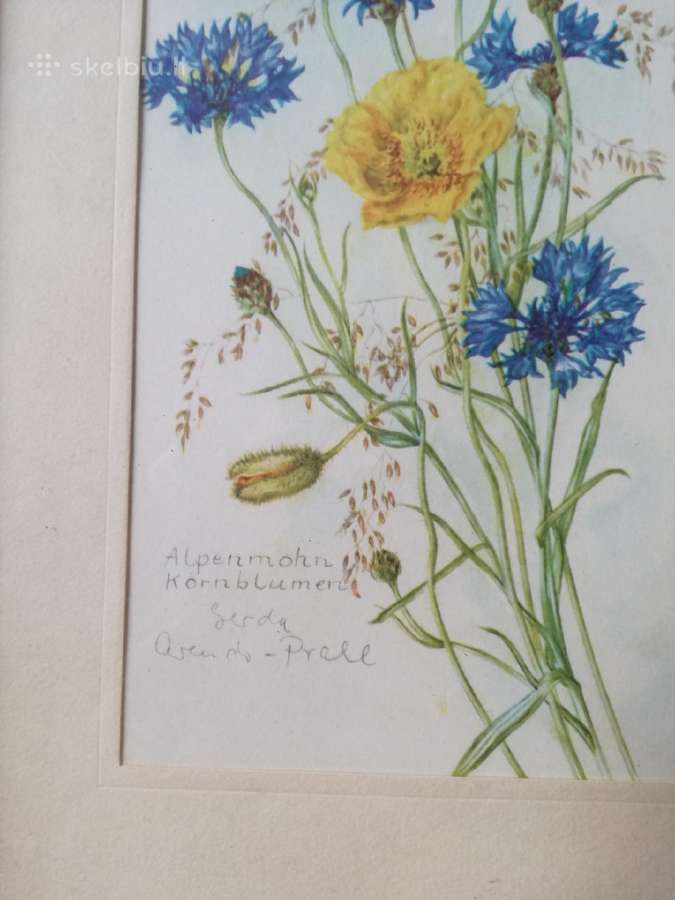 skelbiu.lt
Alpenmohn
Kornblumen
Gerda
Arends-Prall